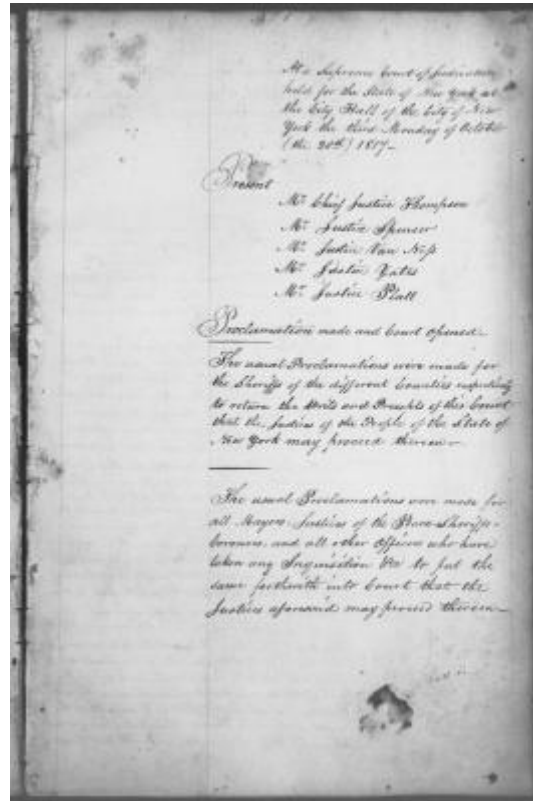 At a Supreme Court of Judicature
held for the State of New York at
the City Hall of the City of New
York the third Monday of October
(the 20th) 1817_
Present
Mr Chief Justice Thompson
Mr Justice Spencer
Mr Justice Van Ness
Mr Justice Yates
Mr Justice Platt
Proclamation made and Court opened_
The usual Proclamations were made for
the Sheriffs of the different Counties respectively
to return the Writs and Precepts of this Court
that the Justices of the People of the State of
New York may proceed thereon_
The usual Proclamations were made for
all Mayors Justices of the Peace Sheriffs
Coroners and all other Officers who have
taken any Inquisition &c to put the
same forthwith into Court that the
Justices aforesaid may proceed thereon_